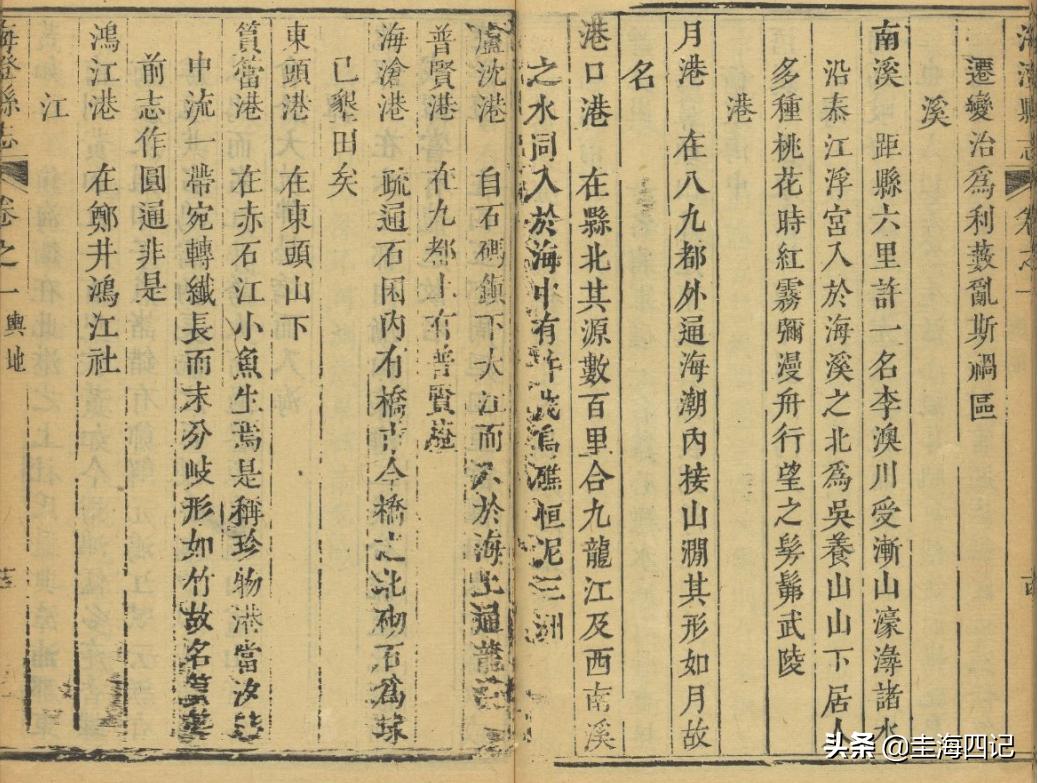 海澄縣志 卷之一
遷變治為利藪亂斯禍區
溪
南溪 距縣六里許一名李澳川受漸山濠潯諸水
沿泰江浮宮入於海溪之北為吳養山山下居人
多種桃花時紅霧彌漫舟行望之髣髴武陵
港
月港 在八九都外通海潮內接山澗其形如月故
名
港口港 在縣北其源數百里合九龍江及西南溪
之水同入於海中有許茂烏礁恒泥三洲
盧沈港 自石碼鎮下大江而入於海上通龍
普賢港 在九都上有普賢菴
海滄港 疏通石囷內有橋古今橋之北砌石為
已墾田矣
東頭港 在東頭山下
篔簹港 在赤石江小魚生焉是稱珍物港當汐
中流一帶宛轉纖長而末分岐形如竹故名
前志作圓通非是
鴻江港 在鄭井鴻江社
江
海澄縣志 卷之一 輿地
头条 @圭海四记